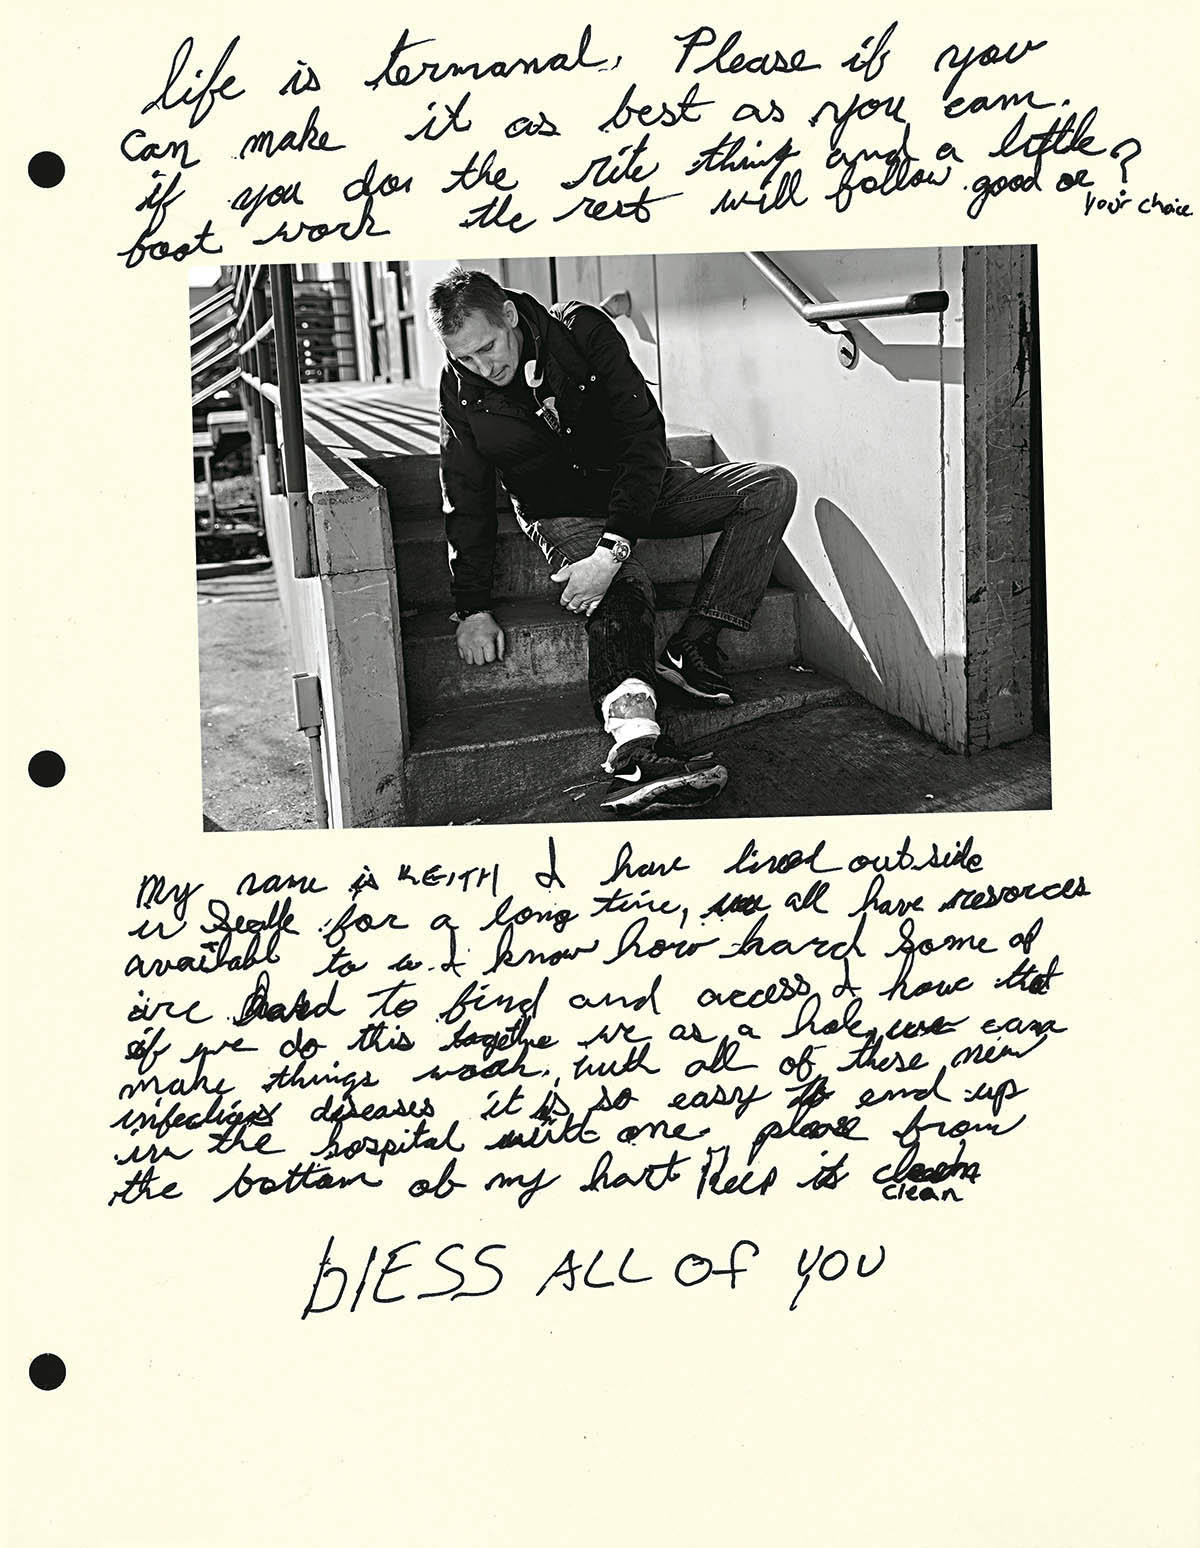 life is termanal, Please if you
can make it as best as you can.
if you do the rite thing and a little
boot work the rest will follow good or ?
your choice
My name is KEITH I have lived outside
in Seattle for a long time, we all have resorces
availabl to us. I know how hard some of
are hard to find and access I how that
if we do this togethe we as a hole, we can
make things work, with all of these new
infections diseases it is so easy to end up
in the hospital with one please from
the bottom of my hart Keep it
clean
blESS ALL Of YOU